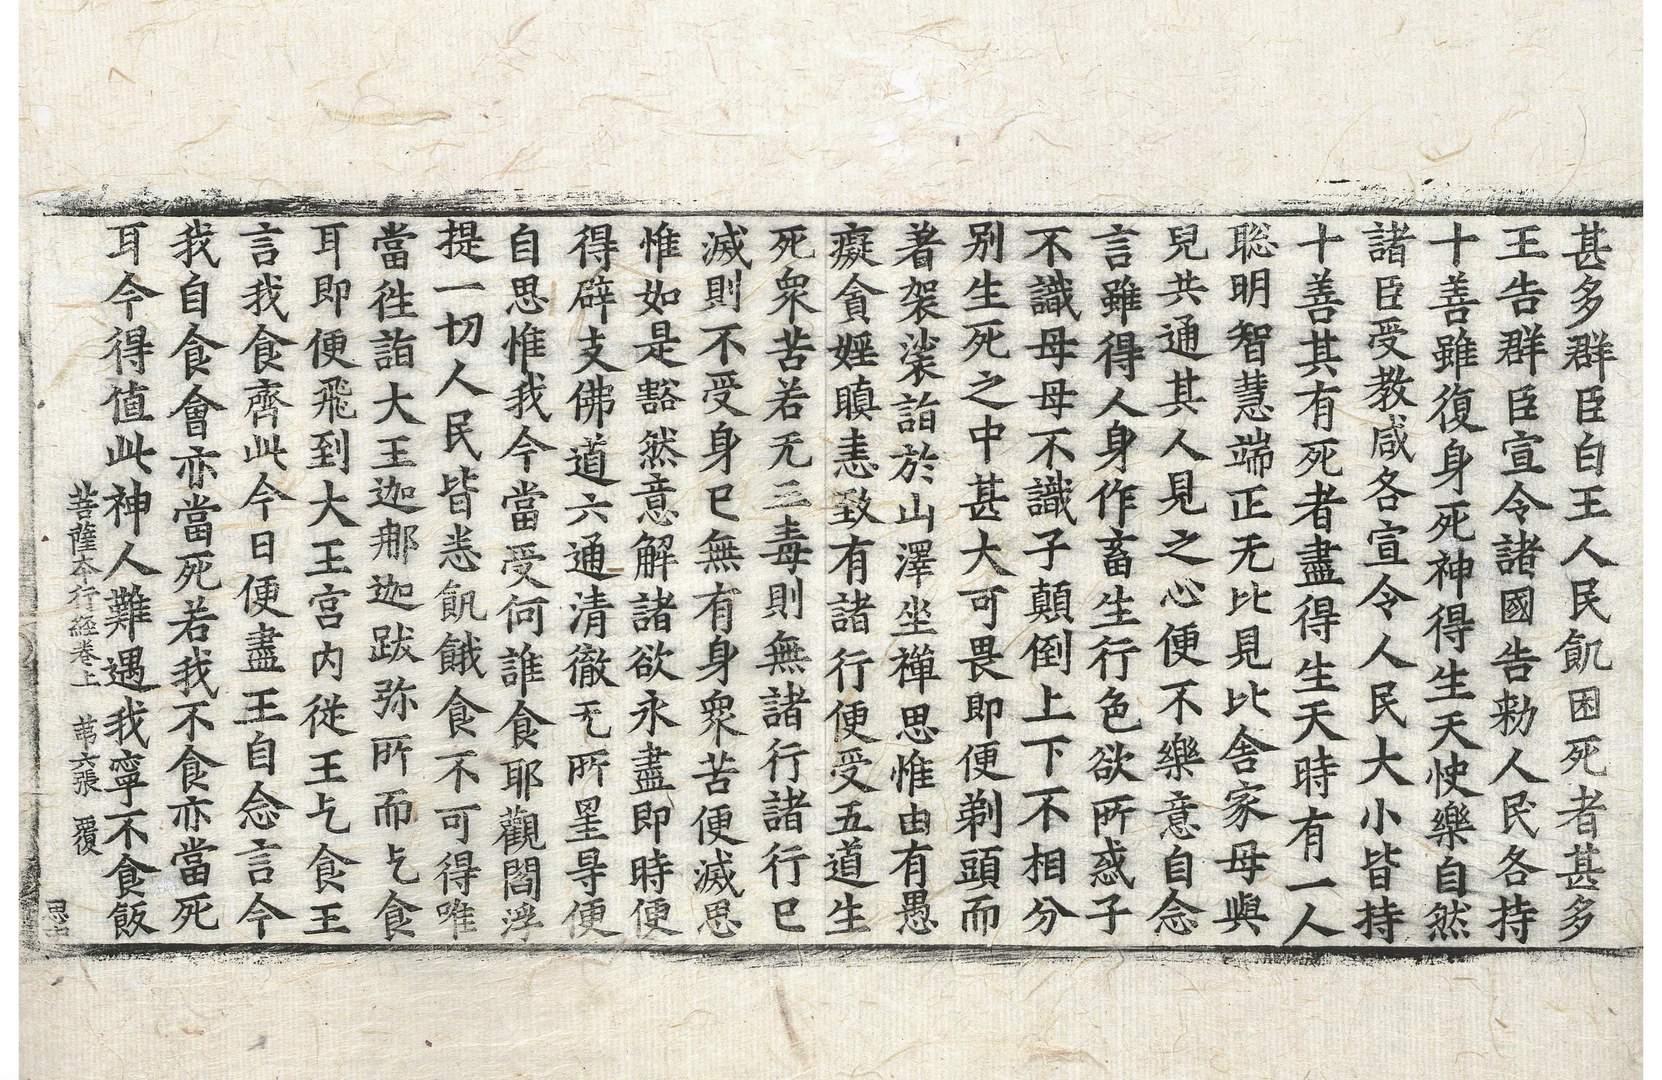 甚多群臣白王人民飢困死者甚多
王告群臣宣令諸國告勑人民各持
十善雖復身死神得生天快樂自然
諸臣受教咸各宣令人民大小皆持
十善其有死者盡得生天時有一人
聡明智慧端正无比見比舍家母與
兒共通其人見之心便不樂意自念
言雖得人身作畜生行色欲所惑子
不識母母不識子顛倒上下不相分
別生死之中甚大可畏即便剃頭而
著袈裟詣於山澤坐禪思惟由有愚
癡貪婬瞋恚致有諸行便受五道生
死衆苦若无三毒則無諸行諸行已
滅則不受身已無有身衆苦便滅思
惟如是豁然意解諸欲永盡即時便
得辟支佛道六通清徹无所罣㝵便
自思惟我今當受何誰食耶觀閻浮
提一切人民皆悉飢餓食不可得唯
當徃詣大王迦𨚗迦跋弥所而乞食
耳即便飛到大王宫内從王乞食王
言我食齊此今日便盡王自念言今
我自食會亦當死若我不食亦當死
耳今得值此神人難遇我寧不食飯
菩薩本行經卷上 苐六張 覆